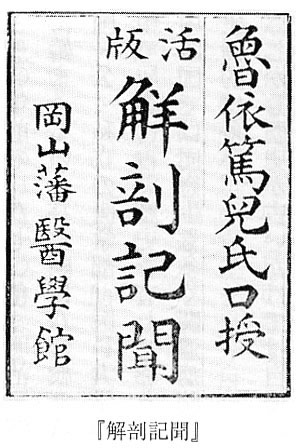 魯依篤兒氏口授
活版
解剖記聞
岡山藩醫學館
『解剖記聞』